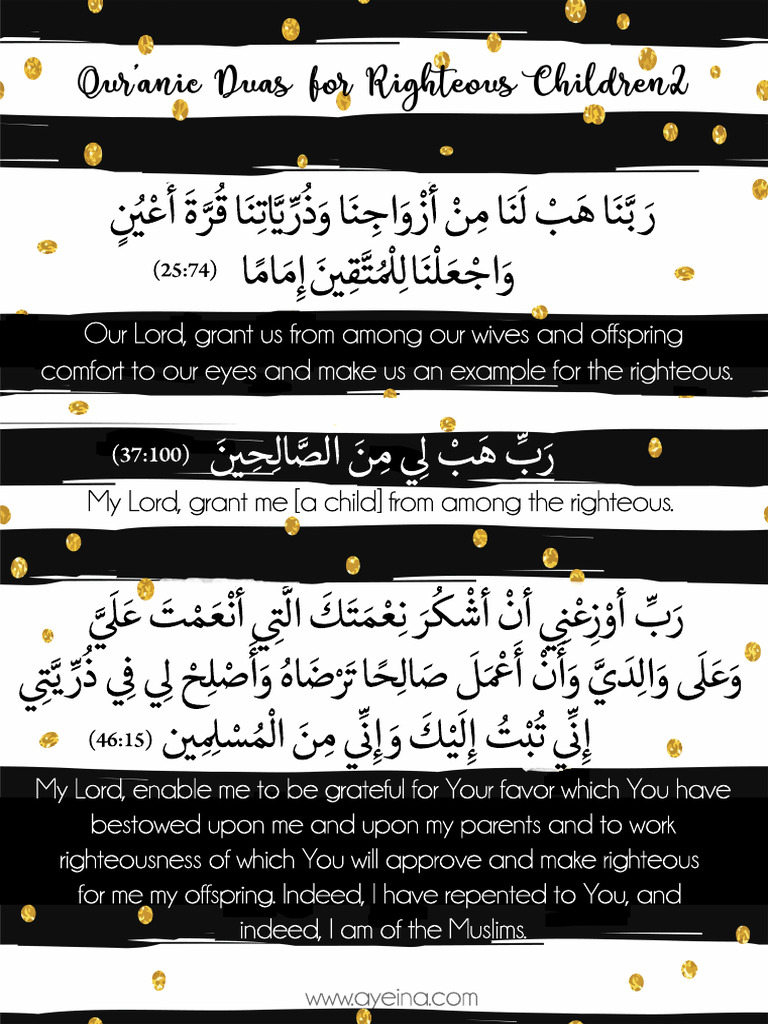 Qur'anic Duas for Righteous Children2
رَبَّنَا هَبْ لَنَا مِنْ أَزْوَاجِنَا وَذُرِّيَّاتِنَا قُرَّةَ أَعْيُنٍ
وَاجْعَلْنَا لِلْمُتَّقِينَ إِمَامًا (25:74)
Our Lord, grant us from among our wives and offspring
comfort to our eyes and make us an example for the righteous.
رَبِّ هَبْ لِي مِنَ الصَّالِحِينَ (37:100)
My Lord, grant me [a child] from among the righteous.
رَبِّ أَوْزِعْنِي أَنْ أَشْكُرَ نِعْمَتَكَ الَّتِي أَنْعَمْتَ عَلَيَّ
وَعَلَى وَالِدَيَّ وَأَنْ أَعْمَلَ صَالِحًا تَرْضَاهُ وَأَصْلِحْ لِي فِي ذُرِّيَّتِي
إِنِّي تُبْتُ إِلَيْكَ وَإِنِّي مِنَ الْمُسْلِمِين (46:15)
My Lord, enable me to be grateful for Your favor which You have
bestowed upon me and upon my parents and to work
righteousness of which You will approve and make righteous
for me my offspring. Indeed, I have repented to You, and
indeed, I am of the Muslims.
www.ayeina.com